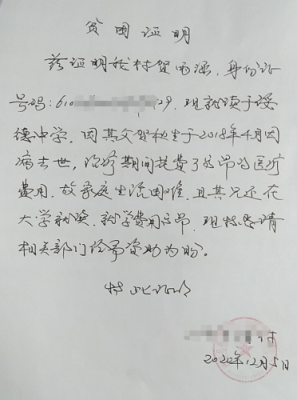 贫困证明
兹证明我村贺 强，身份证
号码：610 29，现就读于绥
德中学，因其父贺秋生于2018年4月因
病去世，治疗期间花费了高昂的医疗
费用，故家庭生活困难，且其兄还在
大学就读，就学费用高昂，现特恳请
相关部门给予资助为盼。
特此证明
村
2020年12月5日